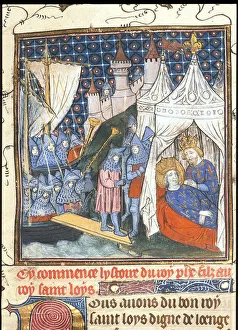 Cy commence lystoire du roy phẽ filz au
roy saint loys.
Nous auions du bon roy
saint loys digne de loenge